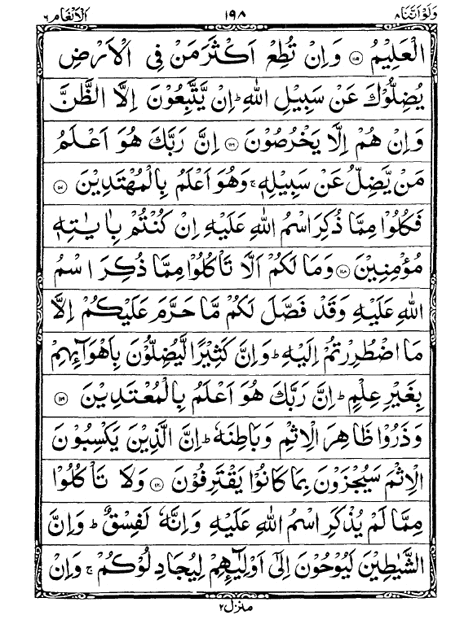 وَلَوْاَنَّنَا ٨ ١٩٨ الْاَنْعَام ٦
الْعَلِيْمُ ﴿۱۱۵﴾ وَاِنْ تُطِعْ اَكْثَرَ مَنْ فِى الْاَرْضِ
يُضِلُّوْكَ عَنْ سَبِيْلِ اللّٰهِ ؕ اِنْ يَّتَّبِعُوْنَ اِلَّا الظَّنَّ
وَاِنْ هُمْ اِلَّا يَخْرُصُوْنَ ﴿۱۱۶﴾ اِنَّ رَبَّكَ هُوَ اَعْلَمُ
مَنْ يَّضِلُّ عَنْ سَبِيْلِهٖ ۚ وَهُوَ اَعْلَمُ بِالْمُهْتَدِيْنَ ﴿۱۱۷﴾
فَكُلُوْا مِمَّا ذُكِرَ اسْمُ اللّٰهِ عَلَيْهِ اِنْ كُنْتُمْ بِاٰيٰتِهٖ
مُؤْمِنِيْنَ ﴿۱۱۸﴾ وَمَا لَكُمْ اَلَّا تَاْكُلُوْا مِمَّا ذُكِرَ اسْمُ
اللّٰهِ عَلَيْهِ وَقَدْ فَصَّلَ لَكُمْ مَّا حَرَّمَ عَلَيْكُمْ اِلَّا
مَا اضْطُرِرْتُمْ اِلَيْهِ ؕ وَاِنَّ كَثِيْرًا لَّيُضِلُّوْنَ بِاَهْوَآئِهِمْ
بِغَيْرِ عِلْمٍ ؕ اِنَّ رَبَّكَ هُوَ اَعْلَمُ بِالْمُعْتَدِيْنَ ﴿۱۱۹﴾
وَذَرُوْا ظَاهِرَ الْاِثْمِ وَبَاطِنَهٗ ؕ اِنَّ الَّذِيْنَ يَكْسِبُوْنَ
الْاِثْمَ سَيُجْزَوْنَ بِمَا كَانُوْا يَقْتَرِفُوْنَ ﴿۱۲۰﴾ وَلَا تَاْكُلُوْا
مِمَّا لَمْ يُذْكَرِ اسْمُ اللّٰهِ عَلَيْهِ وَاِنَّهٗ لَفِسْقٌ ؕ وَاِنَّ
الشَّيٰطِيْنَ لَيُوْحُوْنَ اِلٰٓى اَوْلِيٰٓئِهِمْ لِيُجَادِلُوْكُمْ ۚ وَاِنْ
منزل ٢